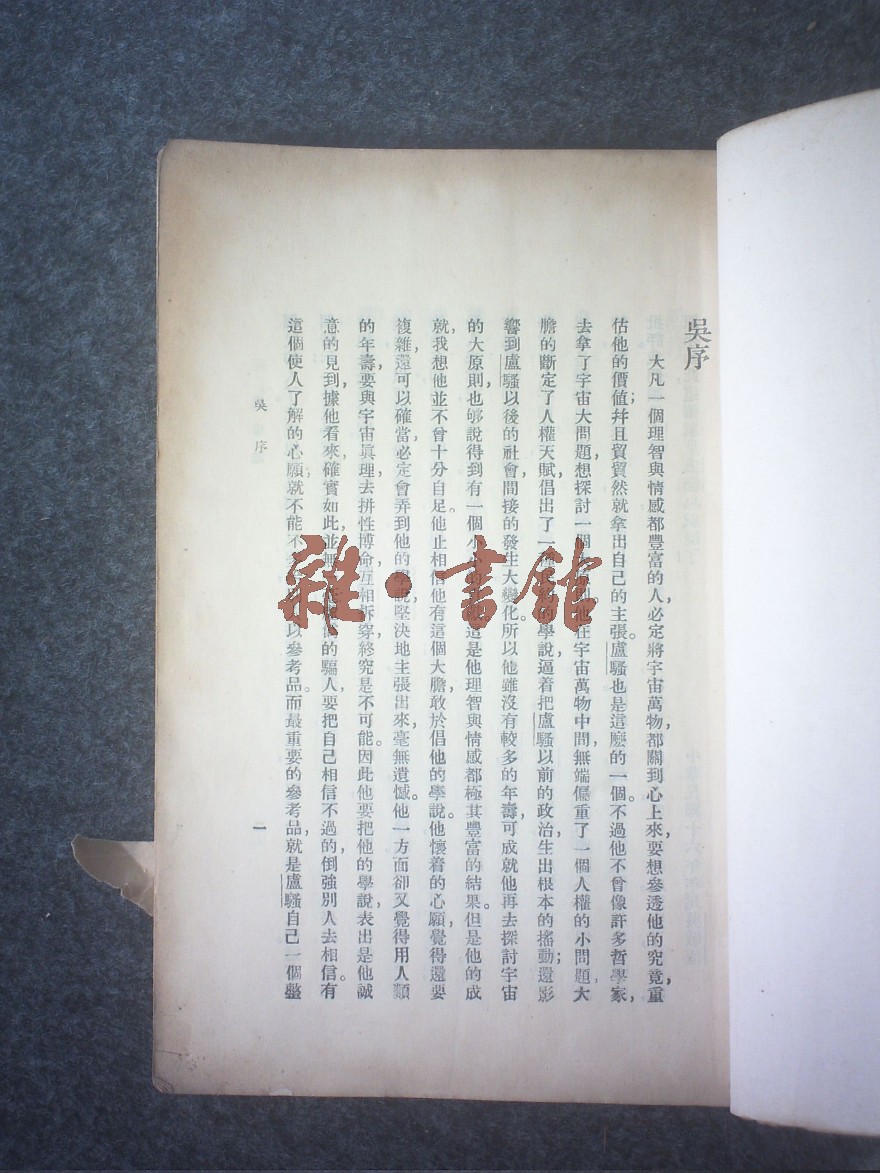 吳序
大凡一個理智與情感都豐富的人,必定將宇宙萬物,都關到心上來,要想參透他的究竟,重
估他的價值;幷且貿貿然就拿出自己的主張。盧騷也是這麽的一個。不過他不曾像許多哲學家,
去拿了宇宙大問題,想探討一個 在宇宙萬物中間,無端偏重了一個人權的小問題,大
膽的斷定了人權天賦,倡出了一 的學說,逼着把盧騷以前的政治,生出根本的搖動;還影
響到盧騷以後的社會,間接的發生大變化。所以他雖沒有較多的年壽,可成就他再去探討宇宙
的大原則,也够說得到有一個小 這是他理智與情感都極其豐富的結果。但是他的成
就,我想他並不曾十分自足。他止相信他有這個大膽,敢於倡他的學說。他懷着的心願,覺得還要
複雜,還可以確當,必定會弄到他的學說,堅決地主張出來,毫無遺憾。他一方面卻又覺得用人類
的年壽,要與宇宙眞理去拼性博命,互相拆穿,終究是不可能。因此他要把他的學說表出是他誠
意的見到,據他看來,確實如此,並無 的騙人,要把自己相信不過的,倒強別人去相信。有
這個使人了解的心願,就不能不 以參考品。而最重要的參考品,就是盧騷自己一個整
吳序
一
雜·書館